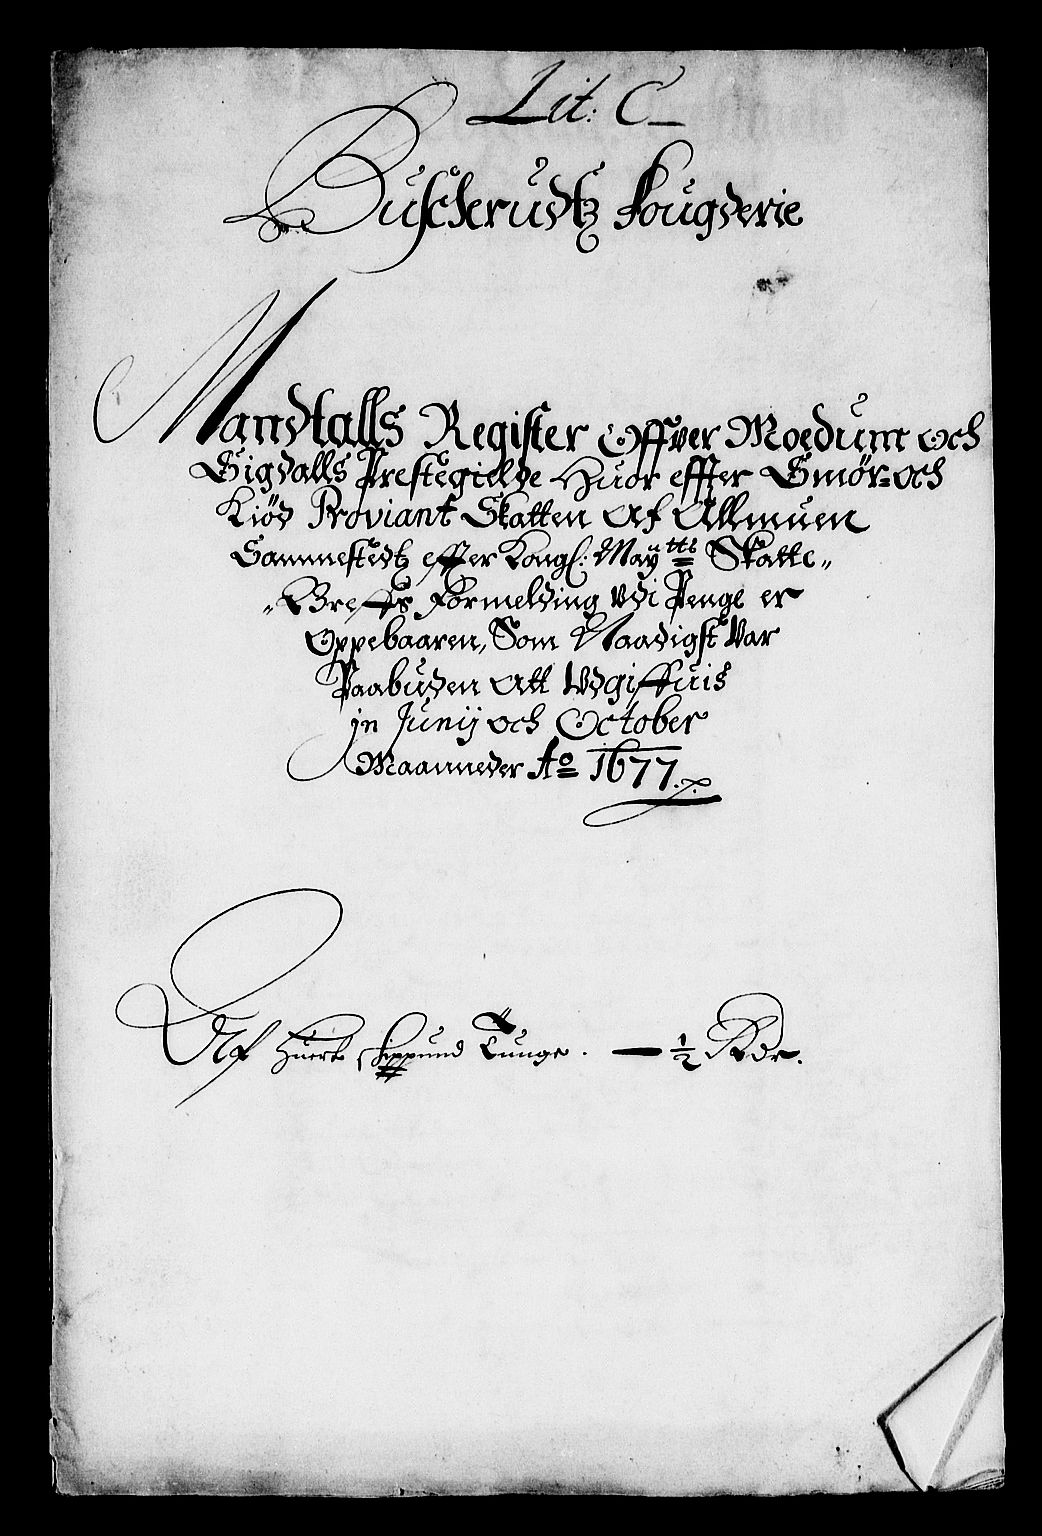 Lit: C
Buscherudtz Fougderie
Mandtalls Register Offver Moedum och
Sigdalls Prestegielde Huor effter Smør= och
Kiød Proviant Skatten Af Allmuen
Sammestedtz effter Kongl: Mayˢᵗᵗˢ Skatte„
„Breffs Formelding Vdi Penge er
Oppebaaren, Som Naadigst Var
Paabuden Att Vdgiffuis
jn Junij och October
Maanneder Aº 1677.
Af huert skippund Tunge. — ½ Rdr.